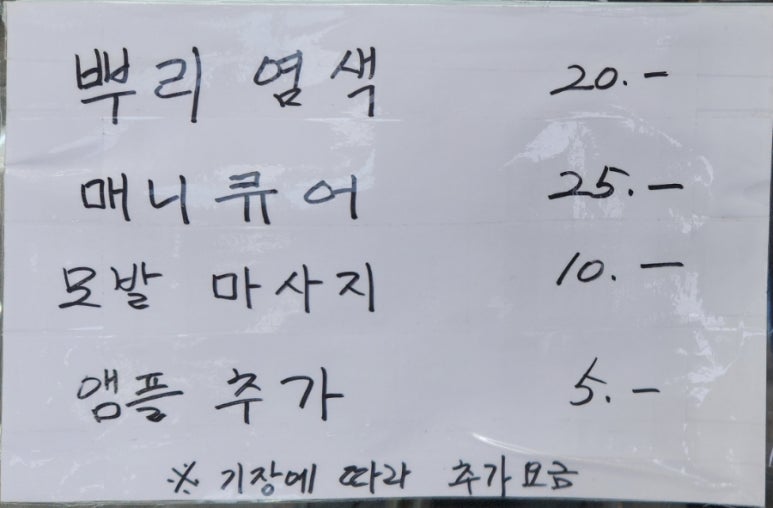 뿌리 염색 20.-
매니큐어 25.-
모발 마사지 10.-
앰플 추가 5.-
※ 기장에 따라 추가요금